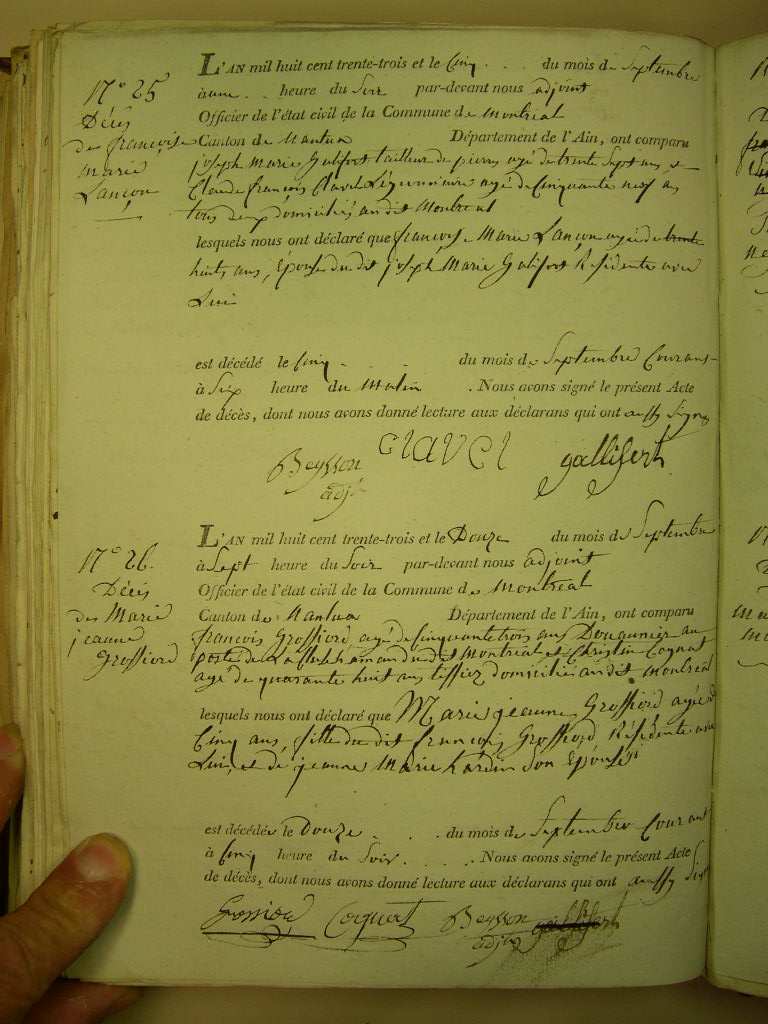 N° 25
Décés
de françoise
Marie
Lançon
L'AN mil huit cent trente-trois et le Cinq du mois de Septembre
à une heure du Soir par-devant nous adjoint
Officier de l'état civil de la Commune de Montréal
Canton de Nantua Département de l'Ain, ont comparu
joseph Marie Galifert tailleur de pierres agé de trente Sept ans, et
Claude françois Clavel agé de Cinquante neuf ans
tous deux domiciliés au dit Montréal
lesquels nous ont déclaré que françoise Marie Lançon agée de trente
huit ans, Epouse du dit joseph Marie Galifert Résidente avec
Lui
est décédé le Cinq du mois de Septembre Courant
à Six heure du Matin . Nous avons signé le présent Acte
de décès, dont nous avons donné lecture aux déclarans qui ont aussy Signé
Beysson CLAVEL gallifert
adj
N° 26.
Décés
de Marie
jeanne
Grossiord
L'AN mil huit cent trente-trois et le Douze du mois de Septembre
à Sept heure du Soir par-devant nous adjoint
Officier de l'état civil de la Commune de Montréal
Canton de Nantua Département de l'Ain, ont comparu
françois Grossiord agé de Cinquante trois ans Douanier au
poste de du dit Montréal et Christin Coquat
agé de quarante huit ans tissier domiciliés au dit Montréal
lesquels nous ont déclaré que Marie jeanne Grossiord agée de
Cinq ans, fille du dit françois Grossiord Résidente avec
Lui, et de jeanne Marie hardin Son Epouse
est décédée le Douze du mois de Septembre Courant
à Cinq heure du Soir . Nous avons signé le présent Acte
de décès, dont nous avons donné lecture aux déclarans qui ont aussy Signé
Grossiord Coquat Beysson gallifert
adj